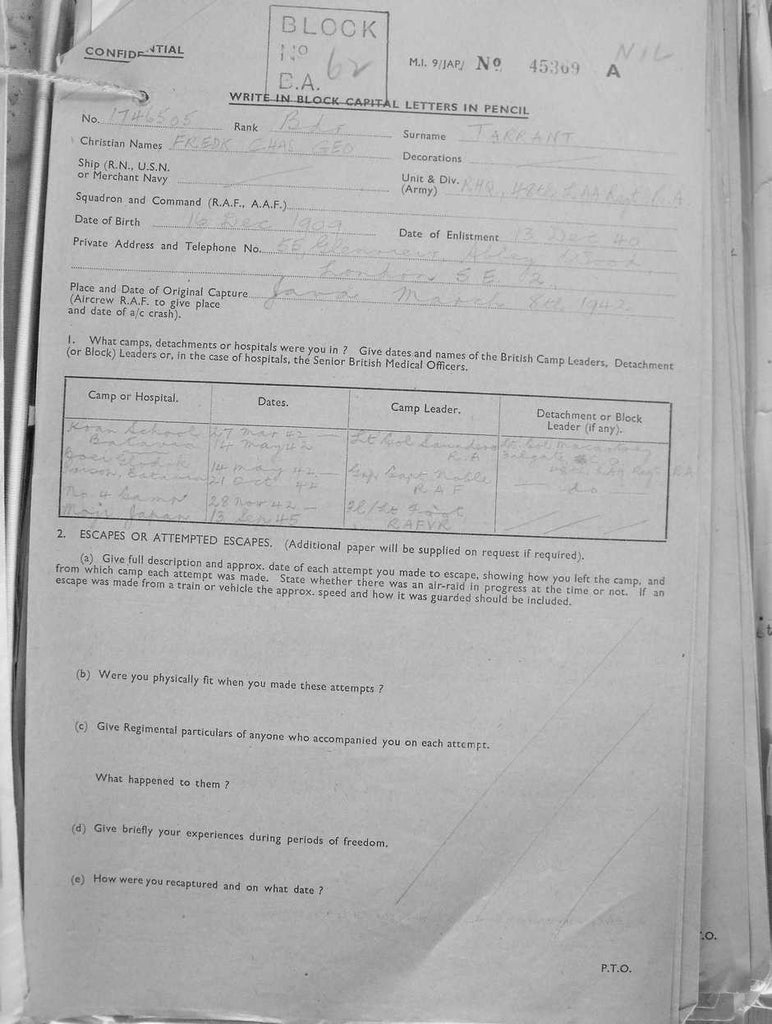 BLOCK
No
B.A. 62
CONFIDENTIAL
M.I. 9/JAP/ No 45309 A
NIL
WRITE IN BLOCK CAPITAL LETTERS IN PENCIL
No. 1746505 Rank Bdr Surname TARRANT
Christian Names FREDK CHAS GEO Decorations
Ship (R.N., U.S.N. or Merchant Navy
Unit & Div. (Army) RHQ, 48th L.AA Regt R.A
Squadron and Command (R.A.F., A.A.F.)
Date of Birth 16 Dec 1909 Date of Enlistment 13 Dec 40
Private Address and Telephone No. 55, Abbey Wood,
London S.E. 2.
Place and Date of Original Capture Java March 8th 1942.
(Aircrew R.A.F. to give place
and date of a/c crash).
1. What camps, detachments or hospitals were you in ? Give dates and names of the British Camp Leaders, Detachment
(or Block) Leaders or, in the case of hospitals, the Senior British Medical Officers.
Camp or Hospital. Dates. Camp Leader. Detachment or Block Leader (if any).
School 27 Mar 42 — Lt Col Saunders Lt Col
Batavia 14 May 42 R.A
14 May 42 — Grp Capt Noble — do —
Prison, Batavia 21 Oct 42 RAF
No 4 Camp 28 Nov 42 —
Moji, Japan 13 Sep 45 RAFVR
2. ESCAPES OR ATTEMPTED ESCAPES. (Additional paper will be supplied on request if required).
(a) Give full description and approx. date of each attempt you made to escape, showing how you left the camp, and
from which camp each attempt was made. State whether there was an air-raid in progress at the time or not. If an
escape was made from a train or vehicle the approx. speed and how it was guarded should be included.
(b) Were you physically fit when you made these attempts ?
(c) Give Regimental particulars of anyone who accompanied you on each attempt.
What happened to them ?
(d) Give briefly your experiences during periods of freedom.
(e) How were you recaptured and on what date ?
P.T.O.
.O.